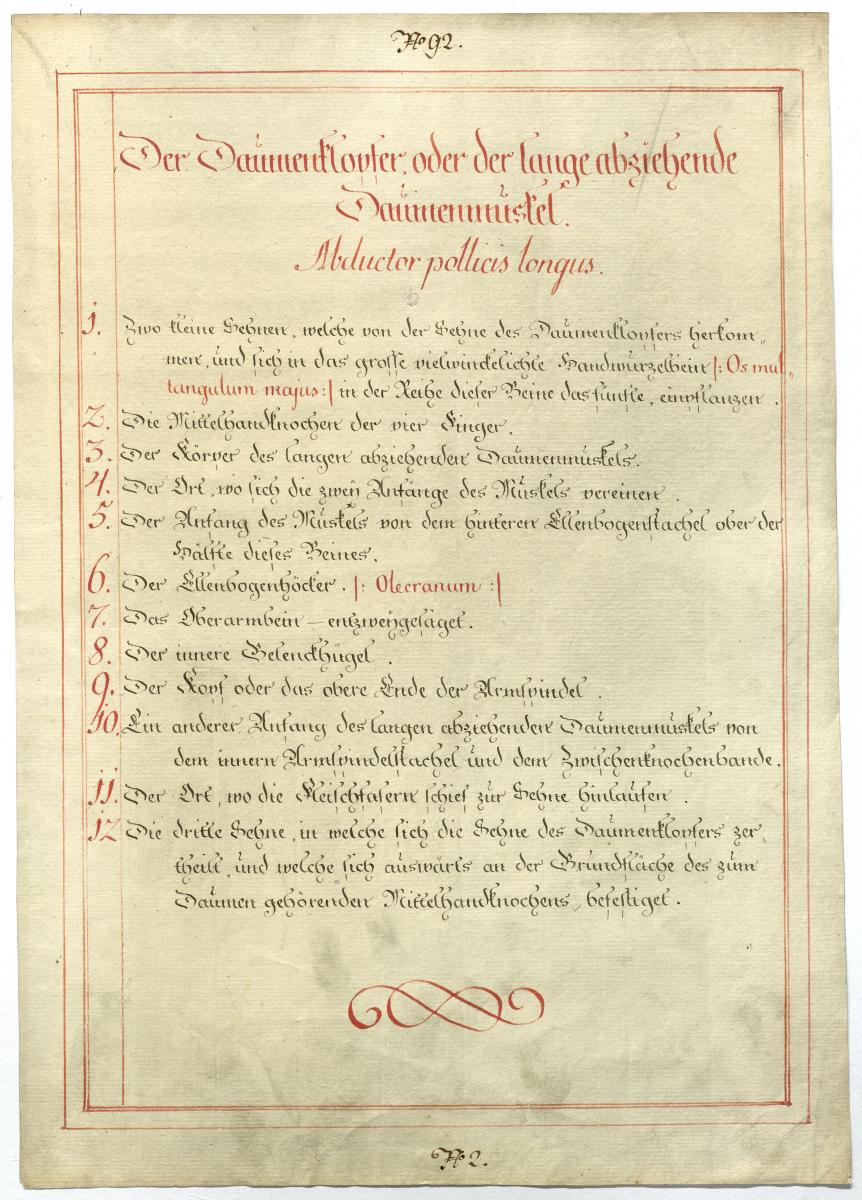 No 92.
Der Daumenklopfer, oder der lange abziehende
Daumenmuskel.
Abductor pollicis longus.
1. Zwo kleine Sehnen, welche von der Sehne des Daumenklopfers herkom„
men, und sich in das grosse vielwinckelichte Handwurzelbein |: Os mul„
tangulum majus :| in der Reihe dieser Beine das fünfte, einpflanzen.
2. Die Mittelhandknochen der vier Finger.
3. Der Körper des langen abziehenden Daumenmuskels.
4. Der Ort, wo sich die zweÿ Anfänge des Muskels vereinen.
5. Der Anfang des Muskels von dem hinteren Ellenbogenstachel ober der
Hälfte dieses Beines.
6. Der Ellenbogenhöcker. |: Olecranum :|
7. Das Oberarmbein – entzweÿgesäget.
8. Der innere Gelenckhügel.
9. Der Kopf oder das obere Ende der Armspindel.
10. Ein anderer Anfang des langen abziehenden Daumenmuskels von
dem innern Armspindelstachel und dem Zwischenknochenbande.
11. Der Ort, wo die Fleischfasern schief zur Sehne hinlaufen.
12 Die dritte Sehne, in welche sich die Sehne des Daumenklopfers zer„
theilt, und welche sich auswärts an der Grundfläche des zum
Daumen gehörenden Mittelhandknochens, befestiget.
No 2.